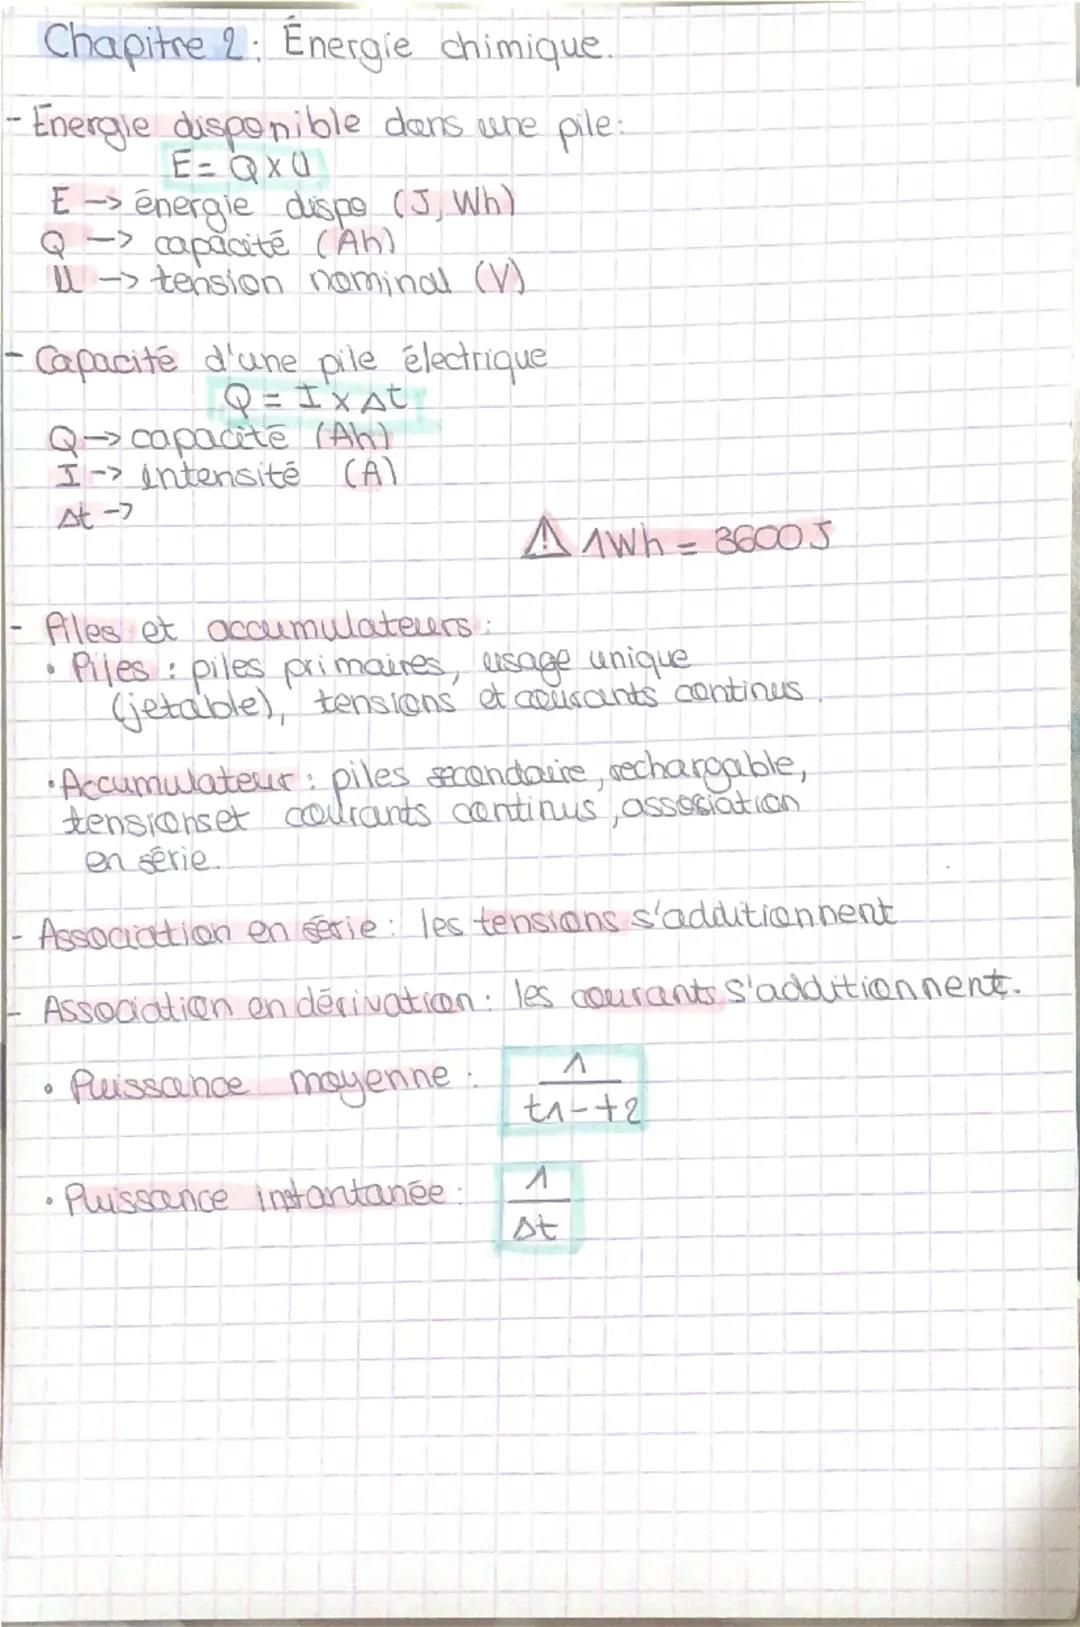 Chapitre 2 : Énergie chimique.
- Energie disponible dans une pile :
E = Q x U
E -> énergie dispo (J, Wh)
Q -> capacité (Ah)
U -> tension nominal (V)
- Capacité d'une pile électrique
Q = I x Δt
Q -> capacité (Ah)
I -> intensité (A)
Δt ->
⚠ 1Wh = 3600 J
- Piles et accumulateurs :
• Piles : piles primaires, usage unique
(jetable), tensions et courants continus.
• Accumulateur : piles secondaire, rechargable,
tensions et courants continus, association
en série.
- Association en série : les tensions s'additionnent
- Association en dérivation : les courants s'additionnent.
• Puissance moyenne : 1
t1 - t2
• Puissance instantanée : 1
Δt